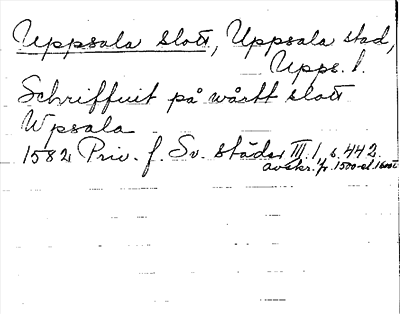 Uppsala slott, Uppsala stad,
Upps. l.
Schriffuit på wårtt slott
Wpsala
1582 Priv. f. Sv. städer III, 1, s. 442.
avskr. fr. 1500-el. 1600t